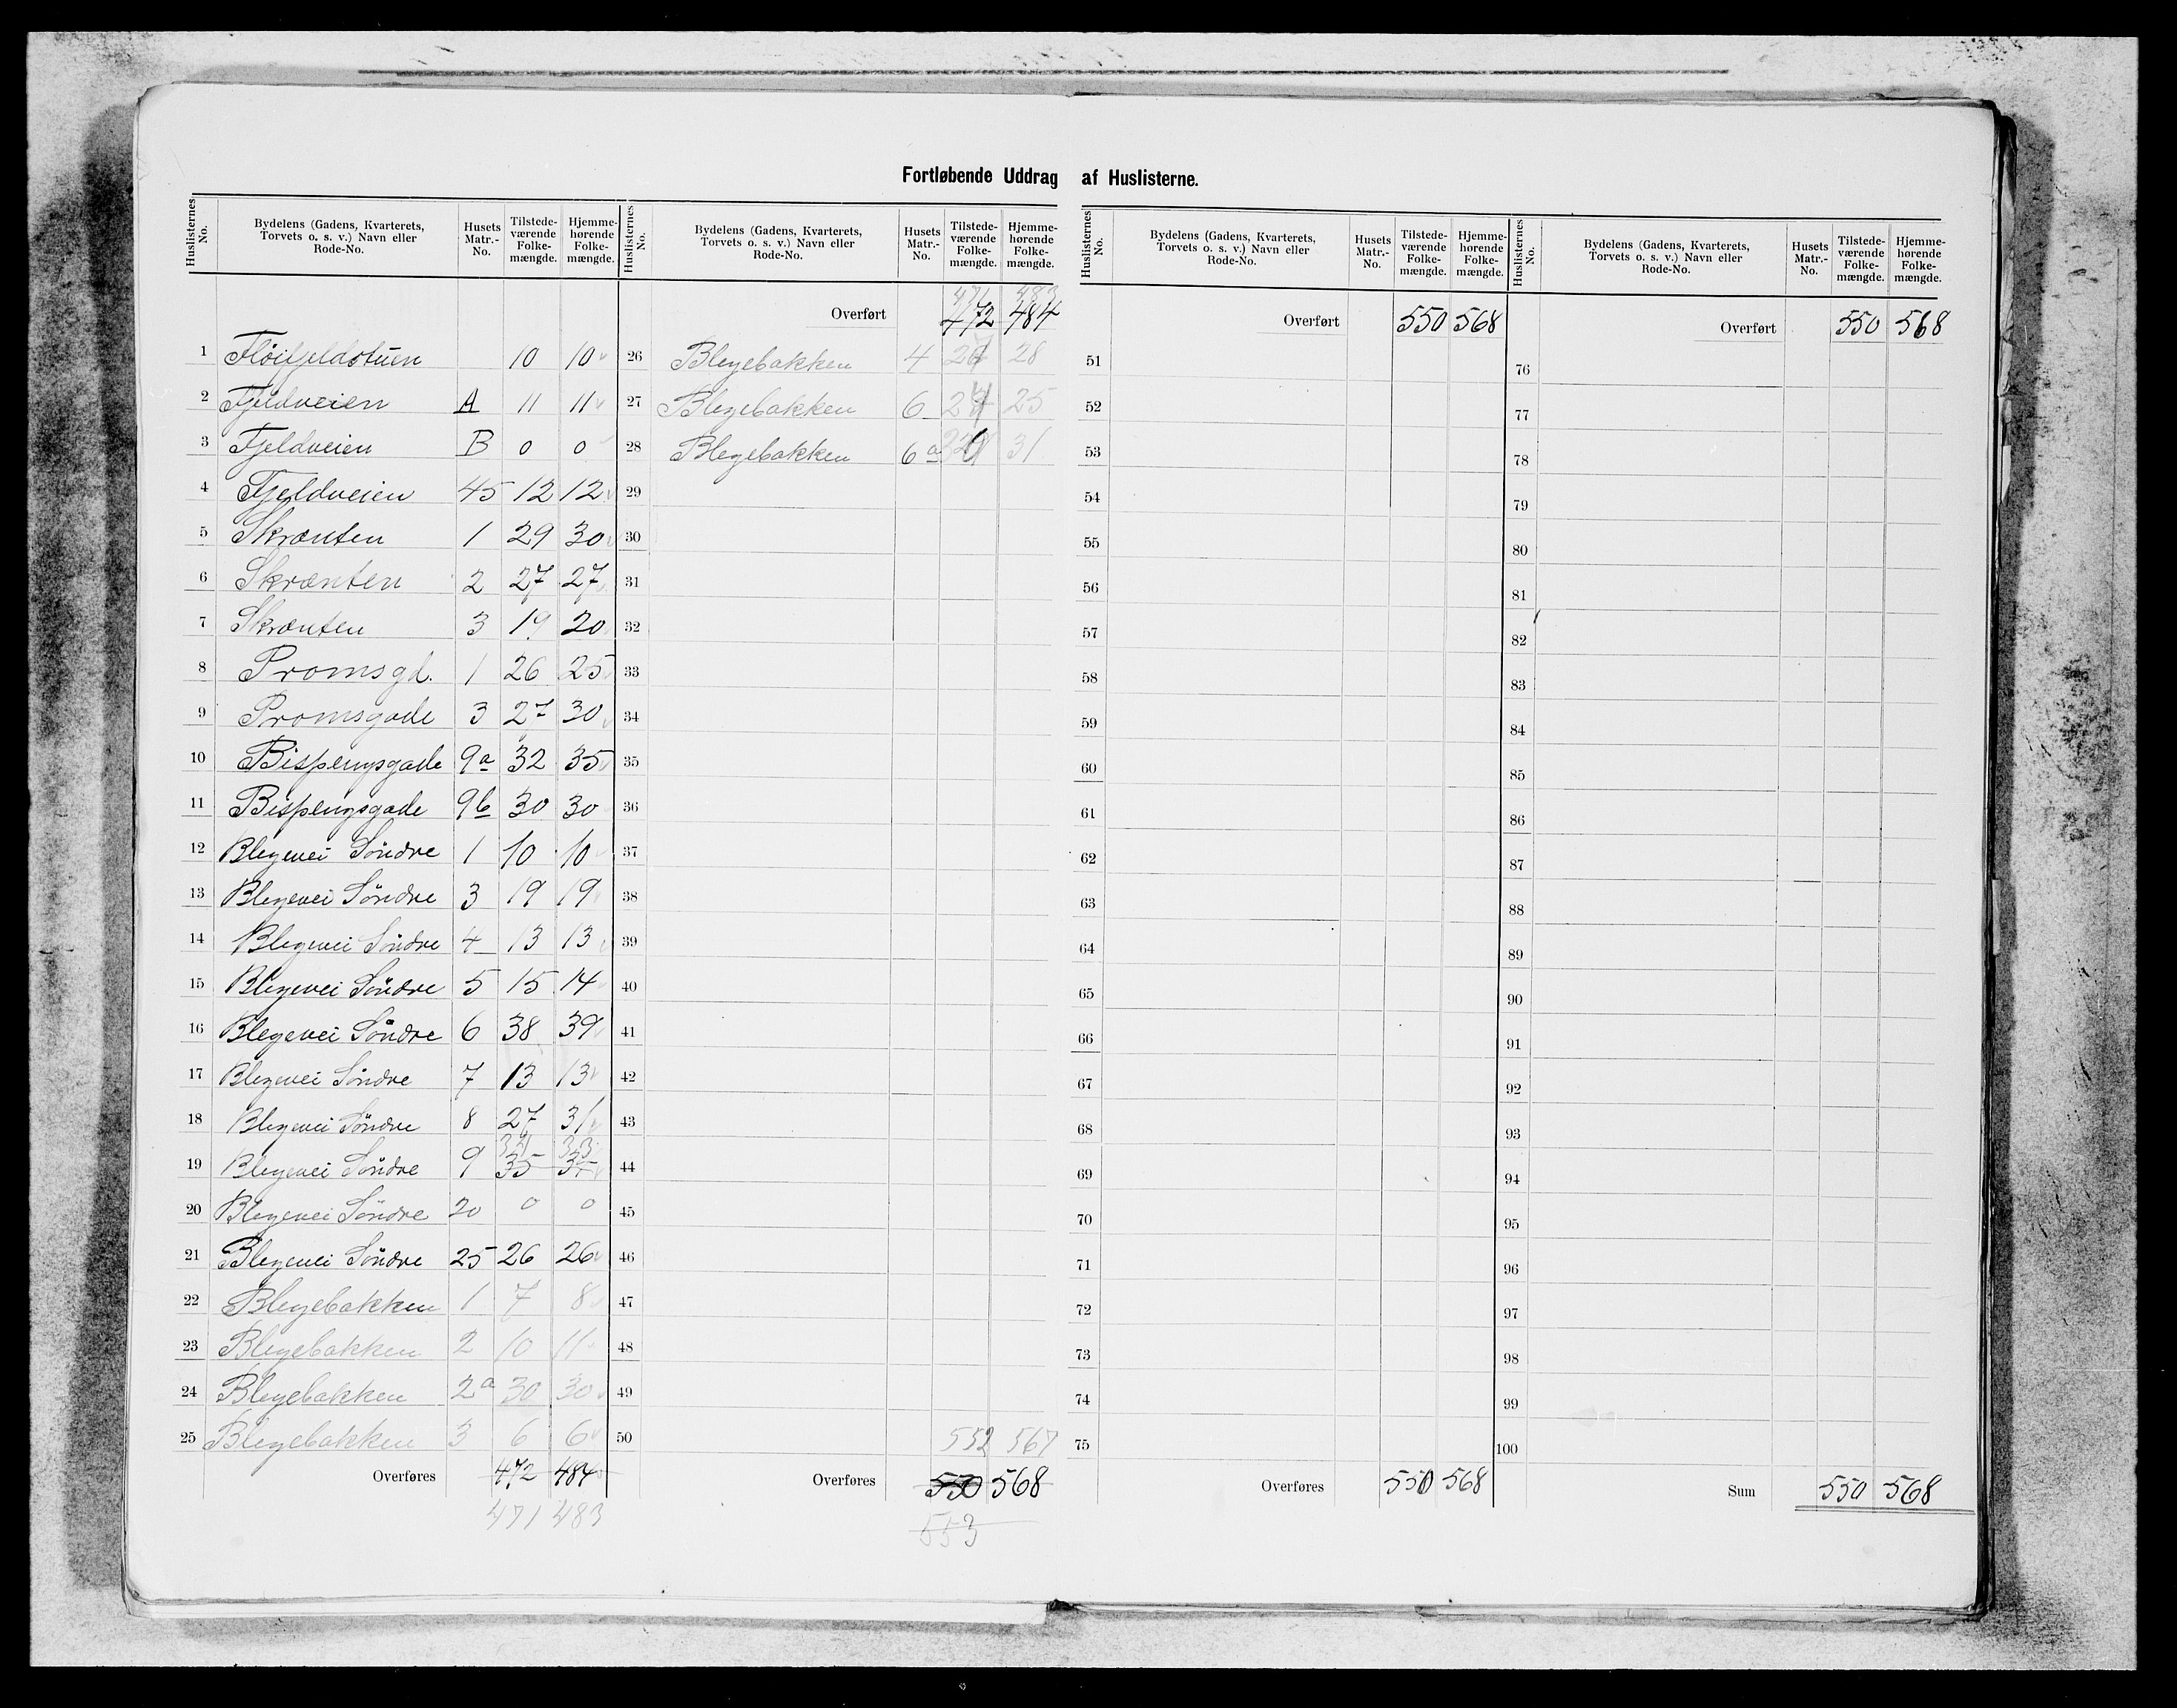 Fortløbende Uddrag af Huslisterne.
Huslisternes No. Bydelens (Gadens, Kvarterets, Torvets o. s. v.) Navn eller Rode-No. Husets Matr.-No. Tilstedeværende Folkemængde. Hjemmehørende Folkemængde.
1 Fløifjeldstuen 10 10
2 Fjeldveien A 11 11
3 Fjeldveien B 0 0
4 Fjeldveien 45 12 12
5 Skrænten 1 29 30
6 Skrænten 2 27 27
7 Skrænten 3 19 20
8 Promsgd. 1 26 25
9 Promsgade 3 27 30
10 Bispengsgade 9a 32 35
11 Bispengsgade 9b 30 30
12 Blegevei Söndre 1 10 10
13 Blegevei Söndre 3 19 19
14 Blegevei Söndre 4 13 13
15 Blegevei Söndre 5 15 14
16 Blegevei Söndre 6 38 39
17 Blegevei Söndre 7 13 13
18 Blegevei Söndre 8 27 31
19 Blegevei Söndre 9 35
20 Blegevei Söndre 20 0 0
21 Blegevei Söndre 25 26 26
22 Blegebakken 1 7 8
23 Blegebakken 2 10 11
24 Blegebakken 2a 30 30
25 Blegebakken 3 6 6
Overføres 472 484
471 483
Huslisternes No. Bydelens (Gadens, Kvarterets, Torvets o. s. v.) Navn eller Rode-No. Husets Matr.-No. Tilstede-værende Folke-mængde. Hjemme-hørende Folke-mængde.
471 483
Overført 472 484
26 Blegebakken 4 28
27 Blegebakken 6 25
28 Blegebakken 6a 31
29
30
31
32
33
34
35
36
37
38
39
40
41
42
43
44
45
46
47
48
49
50 552 567
Overføres 550 568
553
Huslisternes No. Bydelens (Gadens, Kvarterets, Torvets o. s. v.) Navn eller Rode-No. Husets Matr.-No. Tilstede-værende Folke-mængde. Hjemme-hørende Folke-mængde.
Overført 550 568
51
52
53
54
55
56
57
58
59
60
61
62
63
64
65
66
67
68
69
70
71
72
73
74
75
Overføres 550 568
Huslisternes No. Bydelens (Gadens, Kvarterets, Torvets o. s. v.) Navn eller Rode-No. Husets Matr.-No. Tilstede-værende Folke-mængde. Hjemme-hørende Folke-mængde.
Overført 550 568
76
77
78
79
80
81
82
83
84
85
86
87
88
89
90
91
92
93
94
95
96
97
98
99
100
Sum 550 568